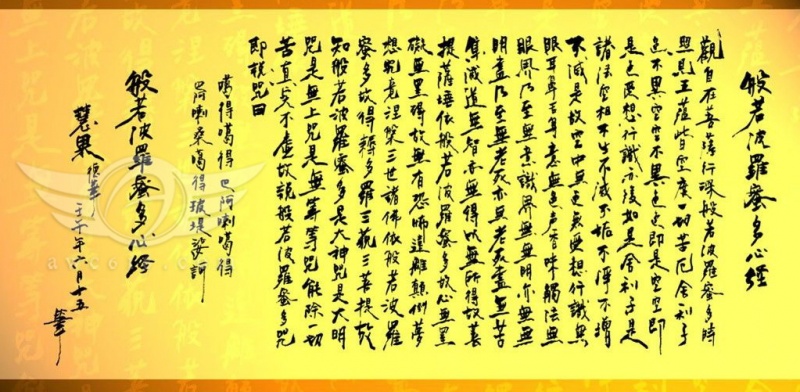 般若波羅蜜多心經
觀自在菩薩行深般若波羅蜜多時
照見五蘊皆空度一切苦厄舍利子
色不異空空不異色色即是空空即
是色受想行識亦復如是舍利子是
諸法空相不生不滅不垢不淨不增
不減是故空中無色無受想行識無
眼耳鼻舌身意無色聲香味觸法無
眼界乃至無意識界無無明亦無無
明盡乃至無老死亦無老死盡無苦
集滅道無智亦無得以無所得故菩
提薩埵依般若波羅蜜多故心無罣
礙無罣礙故無有恐怖遠離顛倒夢
想究竟涅槃三世諸佛依般若波羅
蜜多故得耨多羅三藐三菩提故
知般若波羅蜜多是大神咒是大明
咒是無上咒是無等等咒能除一切
苦真実不虛故說般若波羅蜜多咒
即說咒曰
噶得噶得 巴阿喇噶得
巴阿喇桑噶得玻堤娑訶
般若波羅蜜多心経
慧果
壬午年六月十五
華